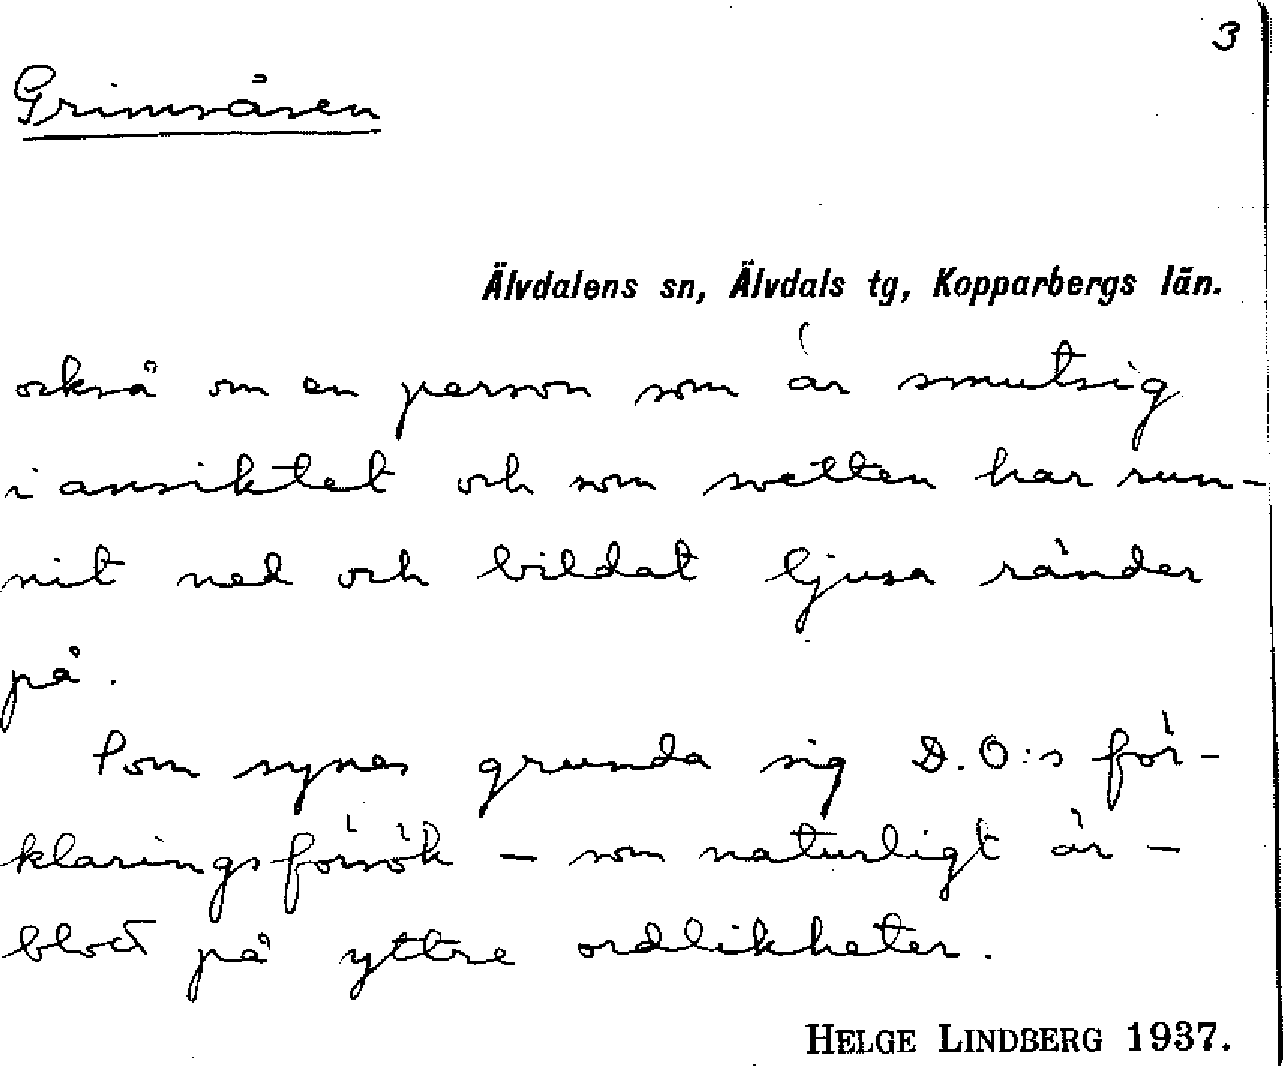 3
Grimsåsen
Älvdalens sn, Älvdals tg, Kopparbergs län.
också om en person som är smutsig
i ansiktet och som svetten har run-
nit ned och bildat ljusa ränder
på.
Som synes grunda sig D.O:s för-
klaringsförsök – som naturligt är –
blott på yttre ordlikheter.
HELGE LINDBERG 1937.